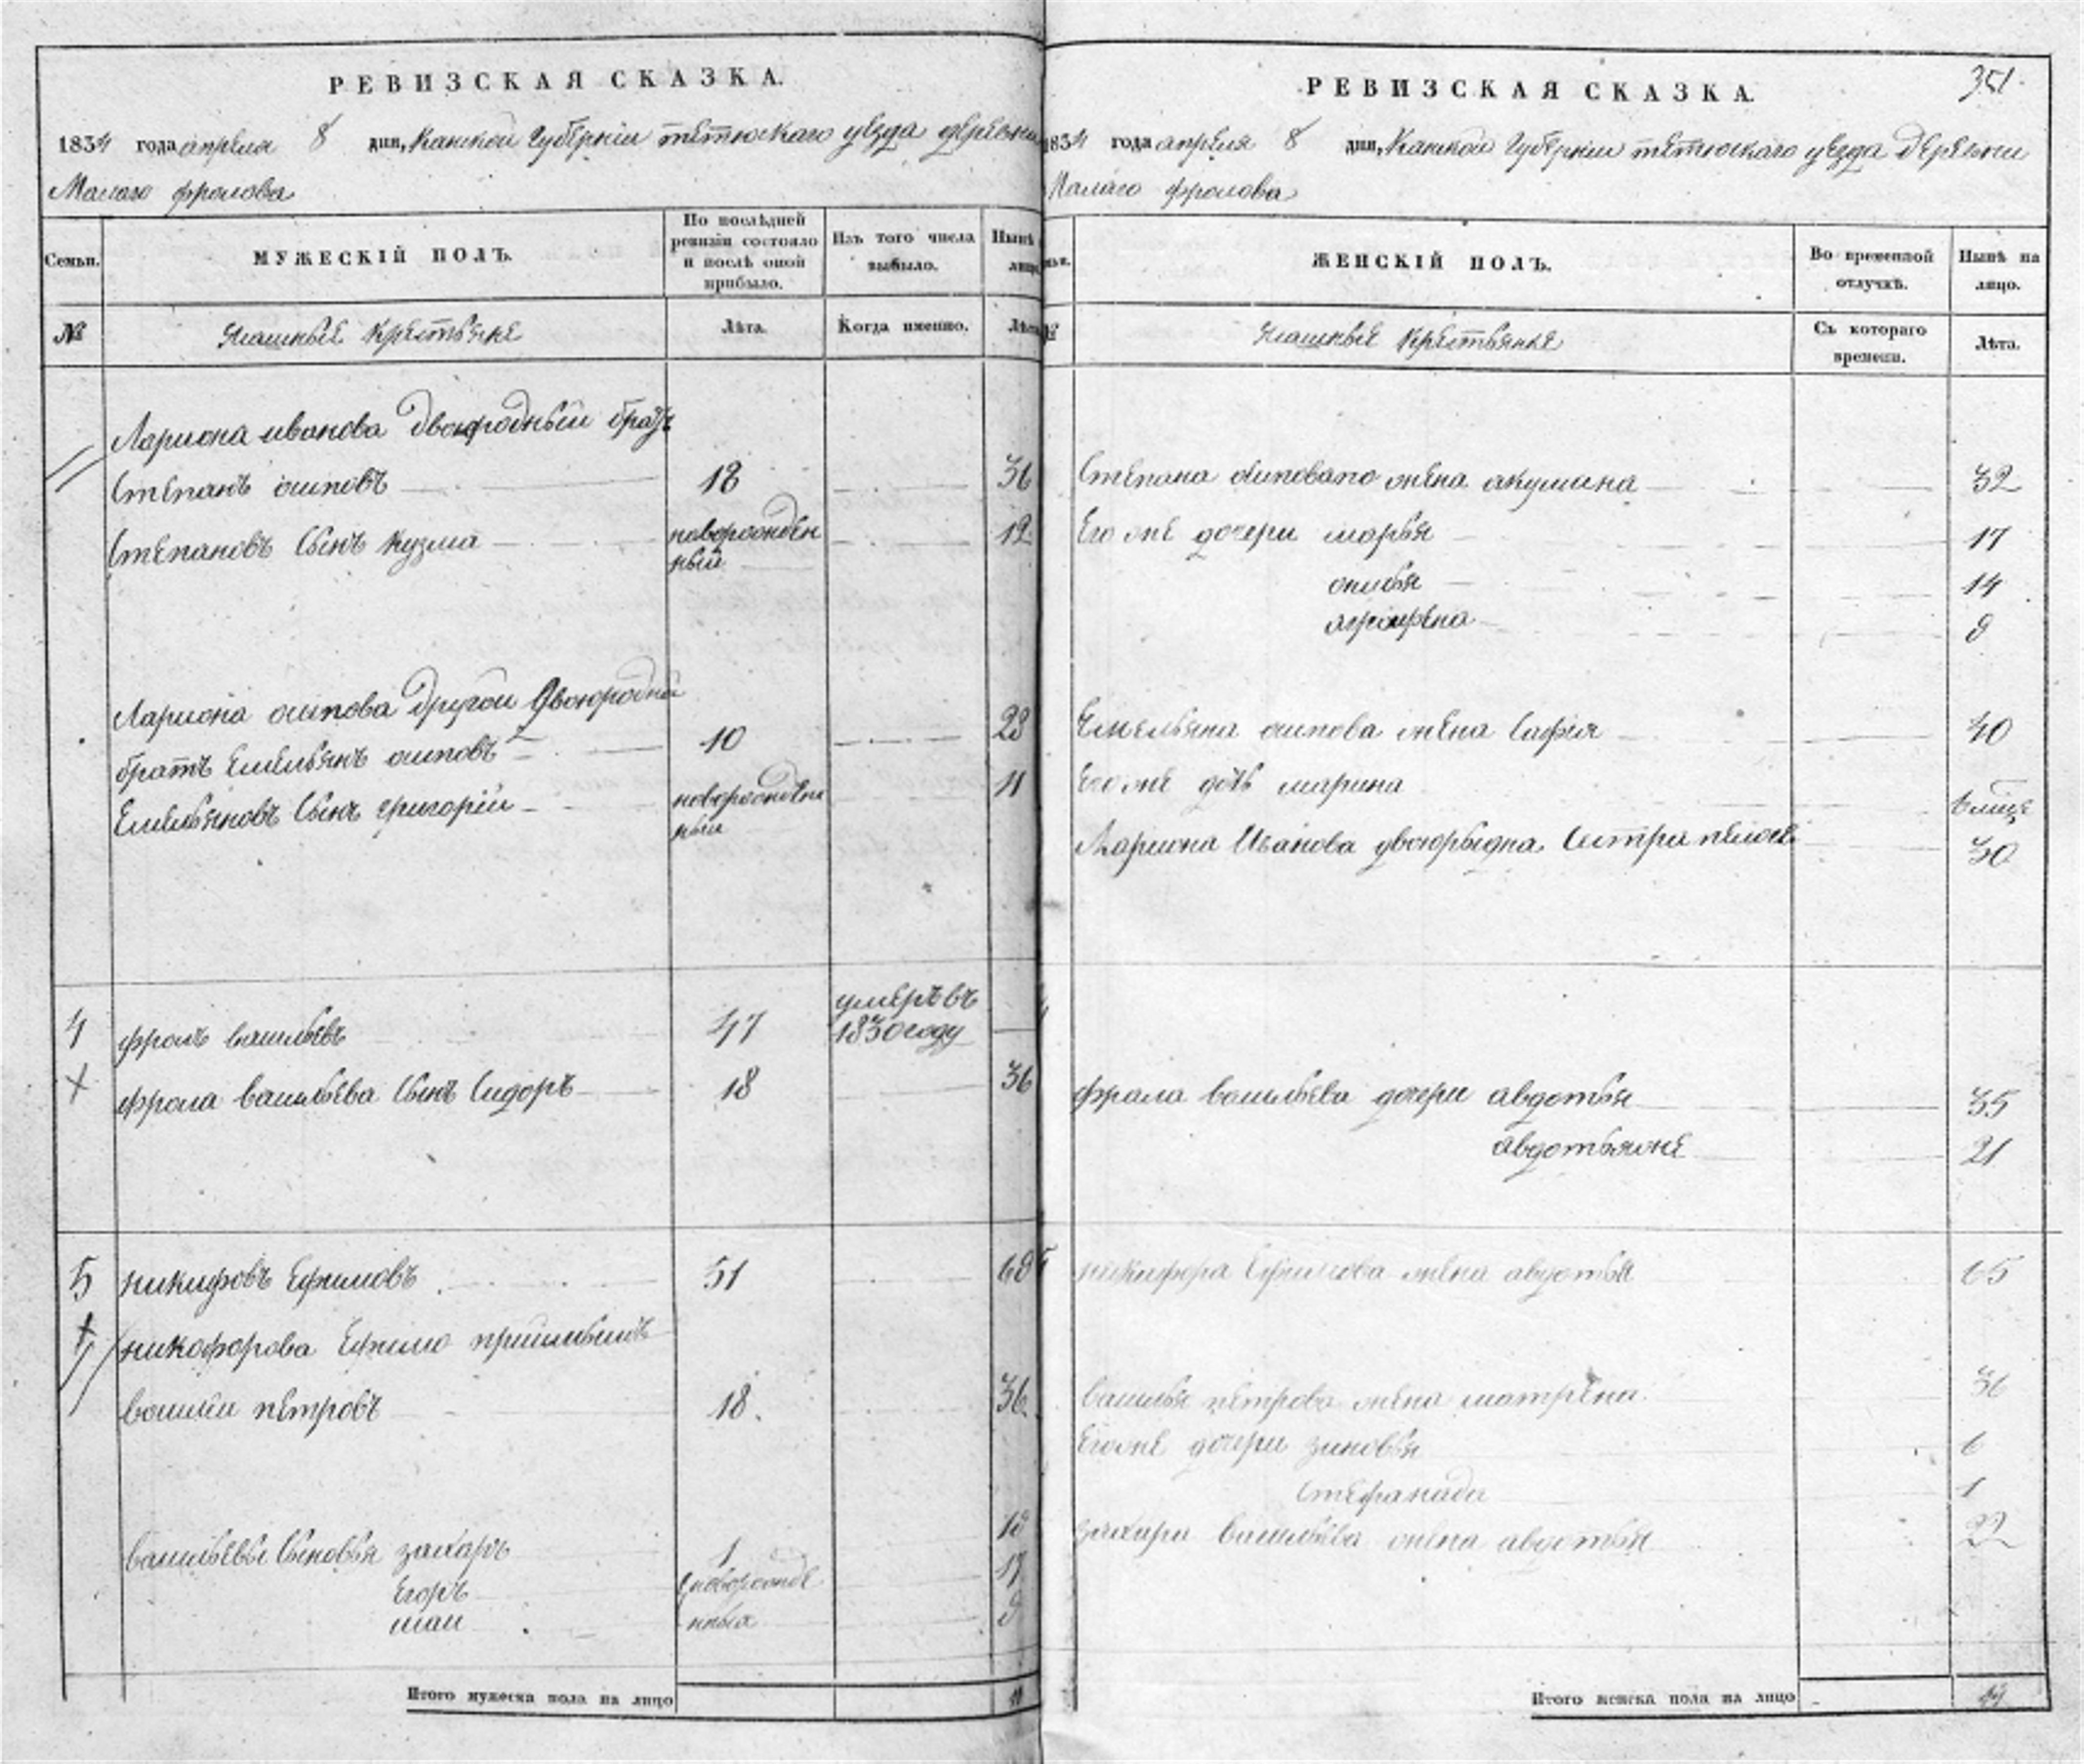 РЕВИЗСКАЯ СКАЗКА.
1834 года апреля 8 дня, Казанской Губернии тетюскаго уезда деревни
Малаго фролова
Семьи.
МУЖЕСКІЙ ПОЛЪ.
По послѣдней ревизіи состояло и послѣ оной прибыло.
Изъ того числа выбыло.
Нынѣ лицо
№
крестьяне
Лѣта.
Когда именно.
Лѣта
Лариона иванова двоюродный братъ
Степанъ осиповъ 18 36
Степановъ Сынъ кузма новорожден 12
ный
Лариона осипова другой двоюродный
братъ Емельянъ осиповъ 10 28
Емельяновъ Сынъ григорій новорожден 11
ный
4 фролъ васильевъ 47 умеръ въ
1830 году
фрола васильева Сынъ Сидоръ 18 36
5 никифовъ Ефимовъ 51 69
никофорова Ефимо
василеи петровъ 18. 36
васильевы Сыновья захаръ 1 18
Егоръ новорожде 17
ныя 9
Итого мужеска пола на лицо 11
РЕВИЗСКАЯ СКАЗКА. 351.
1834 года апреля 8 дня, Казанской Губернии тетюскаго уезда деревни
Малаго фролова
ЖЕНСКІЙ ПОЛЪ.
Во временной отлучкѣ.
Нынѣ на лицо.
№
крестьянке
Съ котораго времени.
Лѣта.
Степана осиповаго жена акулина 32
Его же дочери марья 17
14
аграфена 9
Емельяна осипова жена Сафія 40
Его же дочь марина
Лариона Иванова Сестра 30
фрола васильева дочери авдотья 35
авдотья же 21
5 никифора Ефимова жена авдотья 65
василья петрова жена матрена 36
Его же дочери зиновья 6
Стефанида 1
захара васильева жена авдотья 22
Итого женска пола на лицо 14